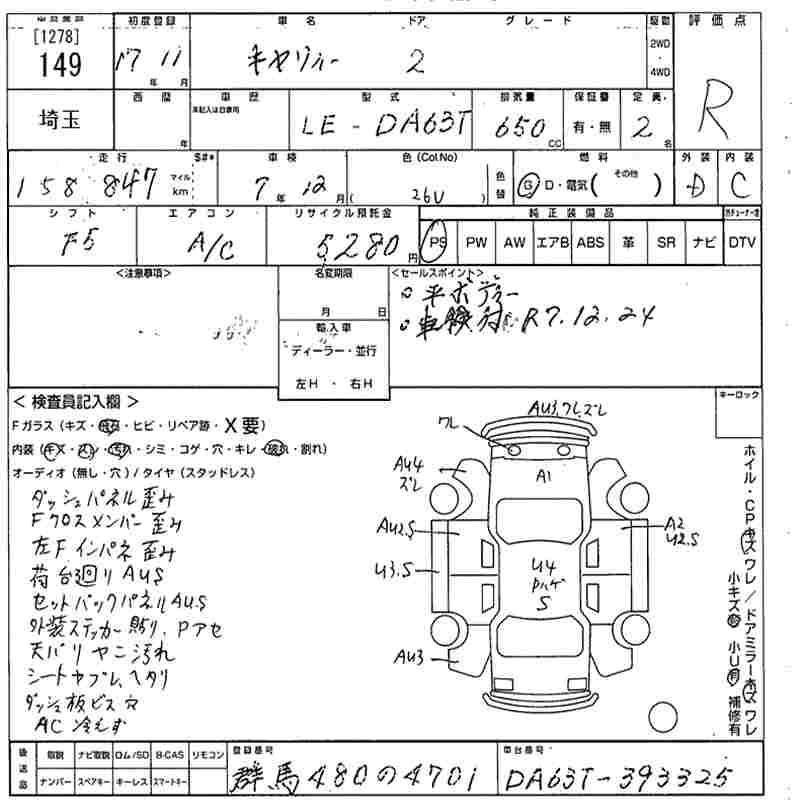 [1278]
149
初度登録
車名
ドア
グレード
駆動
評価点
17年 11月
キャリー
2
2WD
・
4WD
R
埼玉
西暦
年
車歴
未記入は自家用
型式
LE-DA63T
排気量
650
CC
保証書
有・無
定員
2
名
走行
S#*
158847
マイル
km
車検
7年 12月
色(Col.No)
26U
色替
燃料
G D・電気( その他 )
外装
D
内装
C
シフト
F5
エアコン
A/C
リサイクル預託金
5280円
純正装備品
PS PW AW エアB ABS 革 SR ナビ DTV
<注意事項>
名変期限
月 日
輸入車
ディーラー・並行
左H・右H
<セールスポイント>
○平ボディー
○車検付 R7.12.24
<検査員記入欄>
キーロック
Fガラス(キズ・飛石・ヒビ・リペア跡・X要)
内装(キズ・スレ・汚れ・シミ・コゲ・穴・キレ・破れ・割れ)
オーディオ(無し・穴)/タイヤ(スタッドレス)
ダッシュパネル歪み
Fクロスメンバー歪み
左Fインパネ歪み
荷台廻りAUS
セットバックパネルAUS
外装ステッカー貼り、Pアセ
天バリヤニ汚れ
シートヤブレ、ヘタリ
ダッシュ板ビス穴
AC冷えず
AU3,ワレ,ズレ
ワレ
AU4
ズレ
A1
AU2.S
A2
U2.S
U3.S
U4
Pハゲ
S
AU3
ホイル・CPキズワレ/ドアミラーキズワレ
小キズ有 小U有 補修有
後送品
取説 ナビ取説 ロム/SD B-CAS リモコン
ナンバー スペアキー キーレス スマートキー
登録番号
群馬480の4701
車台番号
DA63T-393325